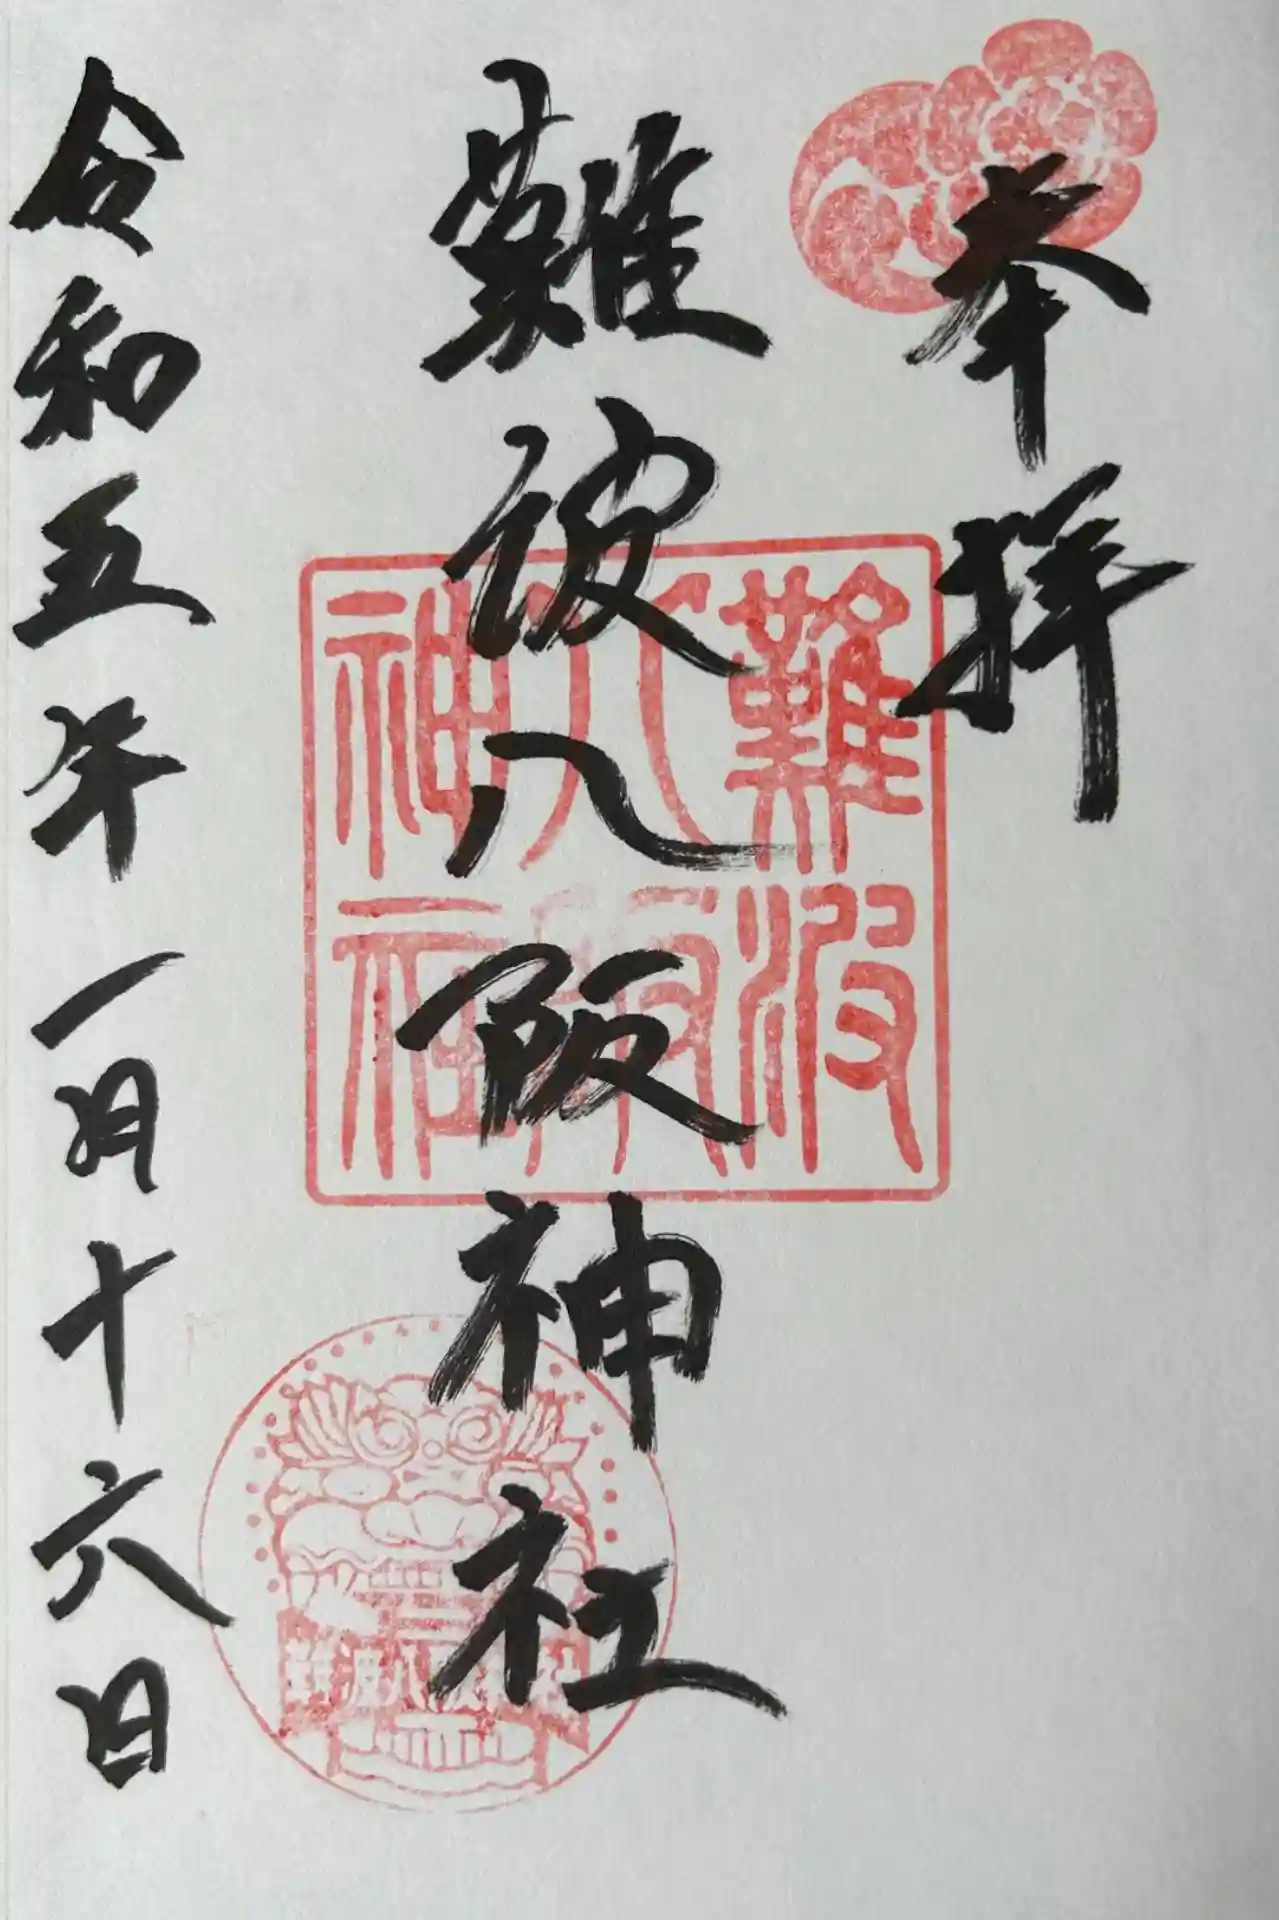 奉拝
難波八阪神社
令和五年一月十六日
難波
八阪
神社
難波八阪神社